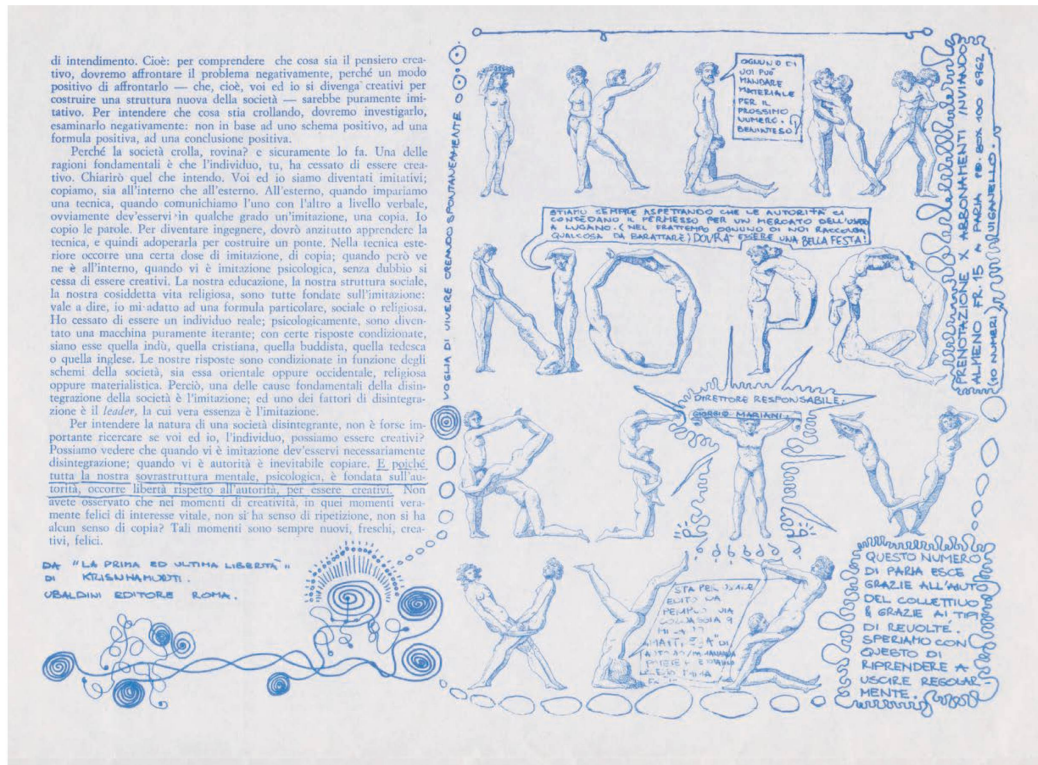 di intendimento. Cioè: per comprendere che cosa sia il pensiero crea-
tivo, dovremo affrontare il problema negativamente, perché un modo
positivo di affrontarlo — che, cioè, voi ed io si divenga creativi per
costruire una struttura nuova della società — sarebbe puramente imi-
tativo. Per intendere che cosa stia crollando, dovremo investigarlo,
esaminarlo negativamente: non in base ad uno schema positivo, ad una
formula positiva, ad una conclusione positiva.
Perché la società crolla, rovina? e sicuramente lo fa. Una delle
ragioni fondamentali è che l'individuo, tu, ha cessato di essere crea-
tivo. Chiarirò quel che intendo. Voi ed io siamo diventati imitativi;
copiamo, sia all'interno che all'esterno. All'esterno, quando impariamo
una tecnica, quando comunichiamo l'uno con l'altro a livello verbale,
ovviamente dev'esservi in qualche grado un'imitazione, una copia. Io
copio le parole. Per diventare ingegnere, dovrò anzitutto apprendere la
tecnica, e quindi adoperarla per costruire un ponte. Nella tecnica este-
riore occorre una certa dose di imitazione, di copia; quando però ve
ne è all'interno, quando vi è imitazione psicologica, senza dubbio si
cessa di essere creativi. La nostra educazione, la nostra struttura sociale,
la nostra cosiddetta vita religiosa, sono tutte fondate sull'imitazione:
vale a dire, io mi adatto ad una formula particolare, sociale o religiosa.
Ho cessato di essere un individuo reale; psicologicamente, sono diven-
tato una macchina puramente iterante; con certe risposte condizionate,
siano esse quella indù, quella cristiana, quella buddista, quella tedesca
o quella inglese. Le nostre risposte sono condizionate in funzione degli
schemi della società, sia essa orientale oppure occidentale, religiosa
oppure materialistica. Perciò, una delle cause fondamentali della disin-
tegrazione della società è l'imitazione; ed uno dei fattori di disintegra-
zione è il leader, la cui vera essenza è l'imitazione.
Per intendere la natura di una società disintegrante, non è forse im-
portante ricercare se voi ed io, l'individuo, possiamo essere creativi?
Possiamo vedere che quando vi è imitazione dev'esservi necessariamente
disintegrazione; quando vi è autorità è inevitabile copiare. E poiché
tutta la nostra sovrastruttura mentale, psicologica, è fondata sull'au-
torità, occorre libertà rispetto all'autorità, per essere creativi. Non
avete osservato che nei momenti di creatività, in quei momenti vera-
mente felici di interesse vitale, non si ha senso di ripetizione, non si ha
alcun senso di copia? Tali momenti sono sempre nuovi, freschi, crea-
tivi, felici.
DA "LA PRIMA ED ULTIMA LIBERTÀ"
DI KRISHNAMURTI.
UBALDINI EDITORE ROMA.
VOGLIA DI VIVERE CREANDO SPONTANEAMENTE
OGNUNO DI
VOI PUÒ
MANDARE
MATERIALE
PER IL
PROSSIMO
NUMERO.
BENINTESO!
STIAMO SEMPRE ASPETTANDO CHE LE AUTORITÀ CI
CONCEDANO IL PERMESSO PER UN MERCATO DELL'USATO
A LUGANO. (NEL FRATTEMPO OGNUNO DI NOI RACCOLGA
QUALCOSA DA BARATTARE) DOVRÀ ESSERE UNA BELLA FESTA!
PRENOTAZIONE X ABBONAMENTI INVIANDO
ALMENO FR. 15 A PARIA PB. BOX 100 6962
(10 NUMERI) VIGANELLO.
DIRETTORE RESPONSABILE:
GIORGIO MARIANI.
QUESTO NUMERO
DI PARIA ESCE
GRAZIE ALL'AIUTO
DEL COLLETTIVO
& GRAZIE AI TIPI
DI REVOLTÉ.
SPERIAMO CON
QUESTO DI
RIPRENDERE A
USCIRE REGOLAR
MENTE.